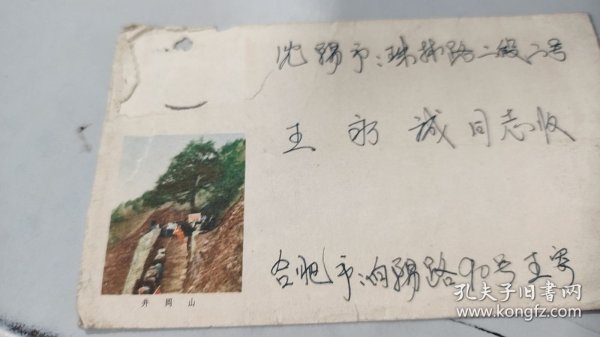 沈阳市:珠林路二段六号
王永诚同志收
井岡山
合肥市:向阳路90号王寄
孔夫子旧书网
www.kongfz.com